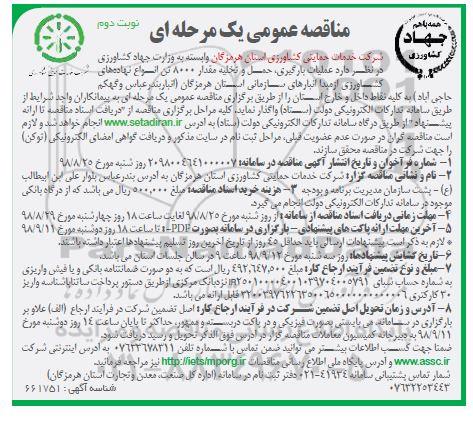 همه با هم
جهاد
کشاورزی
نوبت دوم
مناقصه عمومی یک مرحله ای
شرکت خدمات حمایتی کشاورزی استان هرمزگان وابسته به وزارت جهاد کشاورزی
در نظر دارد عملیات بارگیری، حمل و تخلیه مقدار ۸۰۰۰ تن انواع نهاده‌های
کشاورزی از مبدا انبارهای سازمانی استان هرمزگان (انبار بندرعباس و کهکم
حاجی آباد) به کلیه نقاط داخل و خارج استان را از طریق برگزاری مناقصه عمومی یک مرحله ای به پیمانکاران واجد شرایط از
طریق سامانه تدارکات الکترونیکی دولت (ستاد) واگذار نماید. کلیه مراحل برگزاری مناقصه از «دریافت اسناد مناقصه تا ارائه
پیشنهاد» از طریق درگاه سامانه تدارکات الکترونیکی دولت (ستاد) به آدرس www.setadiran.ir انجام خواهد شد و لازم
است مناقصه گران در صورت عدم عضویت قبلی، مراحل ثبت نام در سایت مذکور و دریافت گواهی امضای الکترونیکی (توکن)
را جهت شرکت در مناقصه محقق سازند.
۱- شماره فرآخوان و تاریخ انتشار آگهی مناقصه در سامانه: ۲۰۹۸۰۰۴۶۴۱۰۰۰۰۰۷ روز شنبه مورخ ۹۸/۸/۲۵
۲- نام و نشانی مناقصه گزار: شرکت خدمات حمایتی کشاورزی استان هرمزگان به آدرس بندرعباس بلوار علی ابن ابیطالب
(ع) - پشت سازمان مدیریت برنامه و بودجه ۳- هزینه خرید اسناد مناقصه: مبلغ ۵۰۰,۰۰۰ ریال می باشد که از درگاه بانکی
موجود در سامانه تدارکات الکترونیکی دولت انجام می گیرد.
۴- مهلت زمانی دریافت اسناد مناقصه از سامانه: از روز شنبه مورخ ۹۸/۸/۲۵ لغایت ساعت ۱۸ روز چهارشنبه مورخ ۹۸/۸/۲۹
۵- آخرین مهلت ارائه پاکت های پیشنهادی - بارگزاری در سامانه بصورت PDF: تا ساعت ۱۸ روز دوشنبه مورخ ۹۸/۹/۱۱
* لازم به ذکر است پیشنهادات ارسالی باید حداقل ۴۵ روز از تاریخ آخرین روز تسلیم پیشنهادها اعتبار داشته باشند.
۶- تاریخ گشایش پیشنهادها: روز سه شنبه مورخ ۹۸/۹/۱۲ ساعت ۹ در سالن جلسات استان می باشد.
۷- مبلغ و نوع تضمین فرآیند ارجاع کار: مبلغ ۴۹۲,۶۴۷,۵۰۰ ریال است که به دو صورت ضمانتنامه بانکی و یا فیش واریزی
به شماره حساب شبای
۳۰ کارکتری
قابل ارائه می باشد.
۸- آدرس و زمان تحویل اصل تضمین شرکت در فرآیند ارجاع کار: اصل تضمین شرکت در فرآیند ارجاع (الف) علاوه بر
بارگزاری در سامانه، می بایستی بصورت فیزیکی و در پاکت دربسته و ممهور حداکثر تا پایان ساعت ۱۴ روز دوشنبه مورخ
۹۸/۹/۱۱ به دبیرخانه کمیسیون معاملات مناقصه گزار در آدرس فوق الذکر تحویل و رسید دریافت شود.
ضمنا جهت کسب اطلاعات بیشتر می توانید ضمن تماس با شماره تلفن ۰۷۶۳۳۶۷۸۳۱۱ به آدرس اینترنتی شرکت
www.assc.ir و آدرس پایگاه ملی اطلاع رسانی مناقصات http://iets/mporg.ir نیز مراجعه فرمائید.
شماره تماس پشتیبانی سامانه ۴۱۹۳۴-۰۲۱ دفتر ثبت نام در سامانه (اداره کل صنعت، معدن و تجارت استان هرمزگان)
۰۷۶۳۲۲۵۳۴۴۳
شناسه آگهی: ۶۶۱۷۵۱